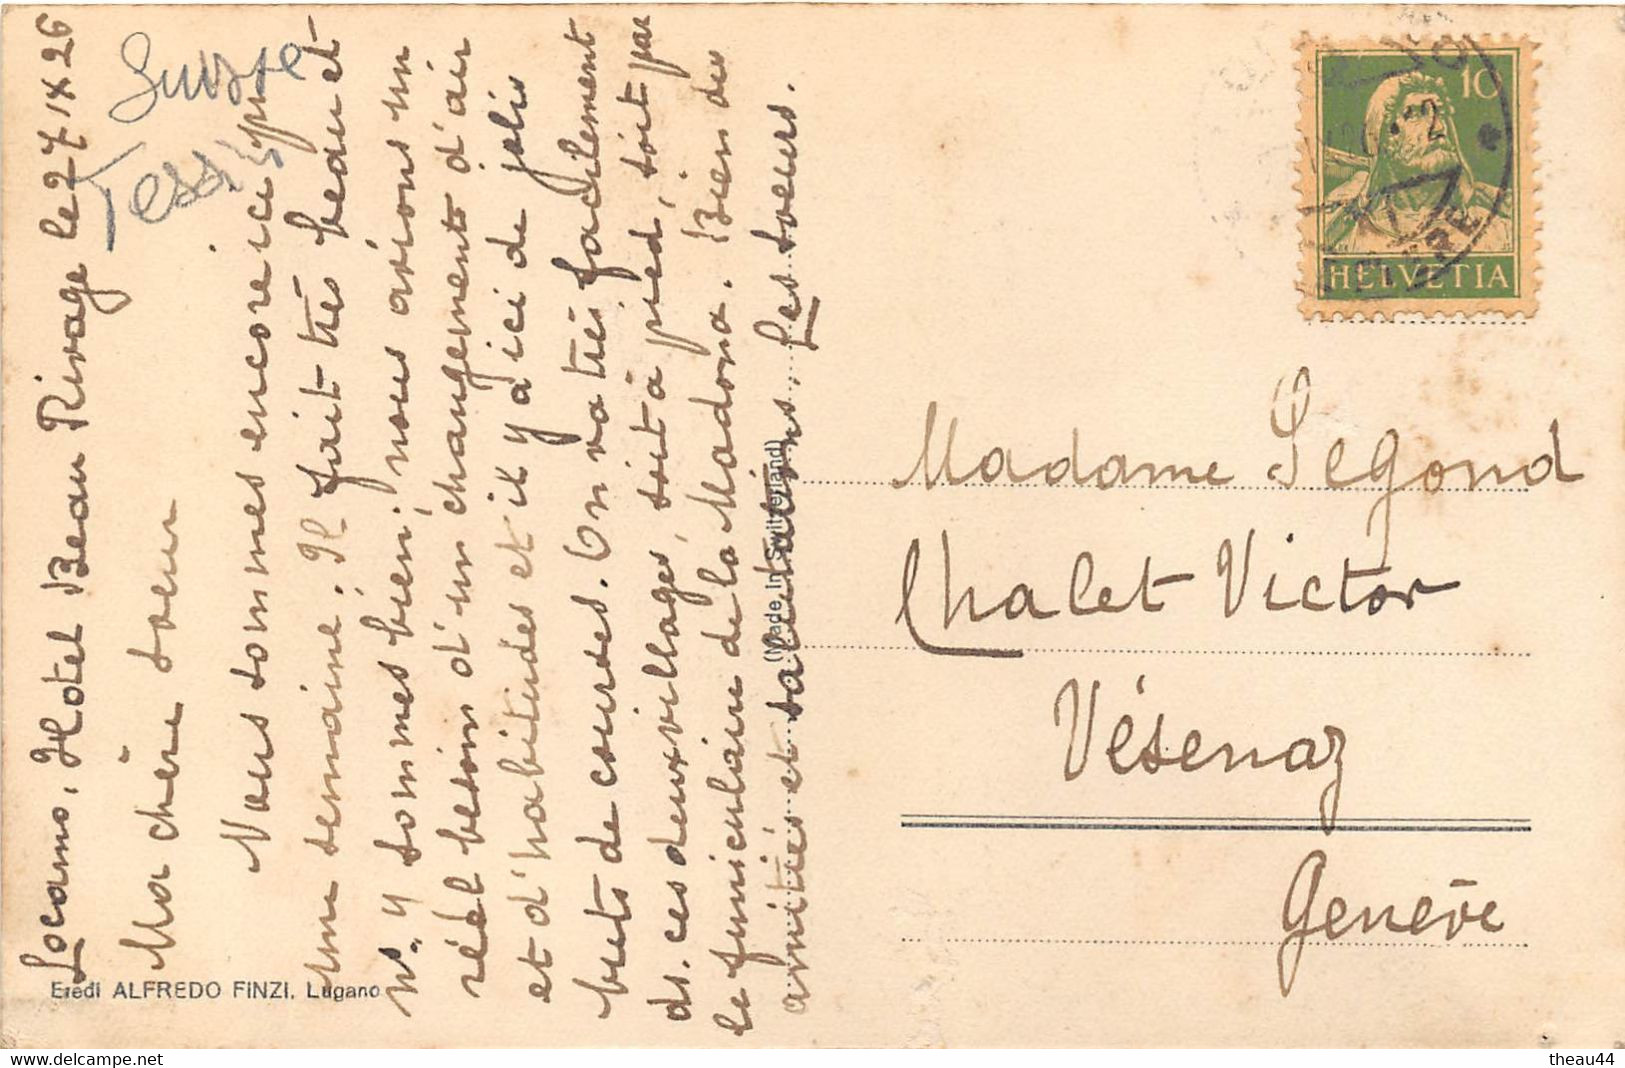 Locarno, Hotel Beau Rivage le 27 IX 26
Suisse
Tessin
Ma chère soeur
Nous sommes encore ici pr
une semaine. Il fait très beau et
ns. y sommes bien; nous avions un
réel besoin d'un changement d'air
et d'habitudes et il y a ici de jolis
buts de courses. On va très facilement
ds. ces deux villages, soit à pied, soit par
le funiculaire de la Madona. Bien des
amitiés et salutations. Les soeurs.
Eredi ALFREDO FINZI. Lugano
(Made in Switzerland)
10
HELVETIA
Madame Segond
Chalet Victor
Vésenaz
Genève
delcampe.net
theau44